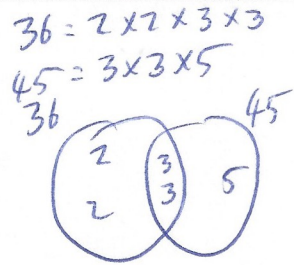 36 = 2 × 2 × 3 × 3
45 = 3 × 3 × 5
36 45
2 3
3 5
2